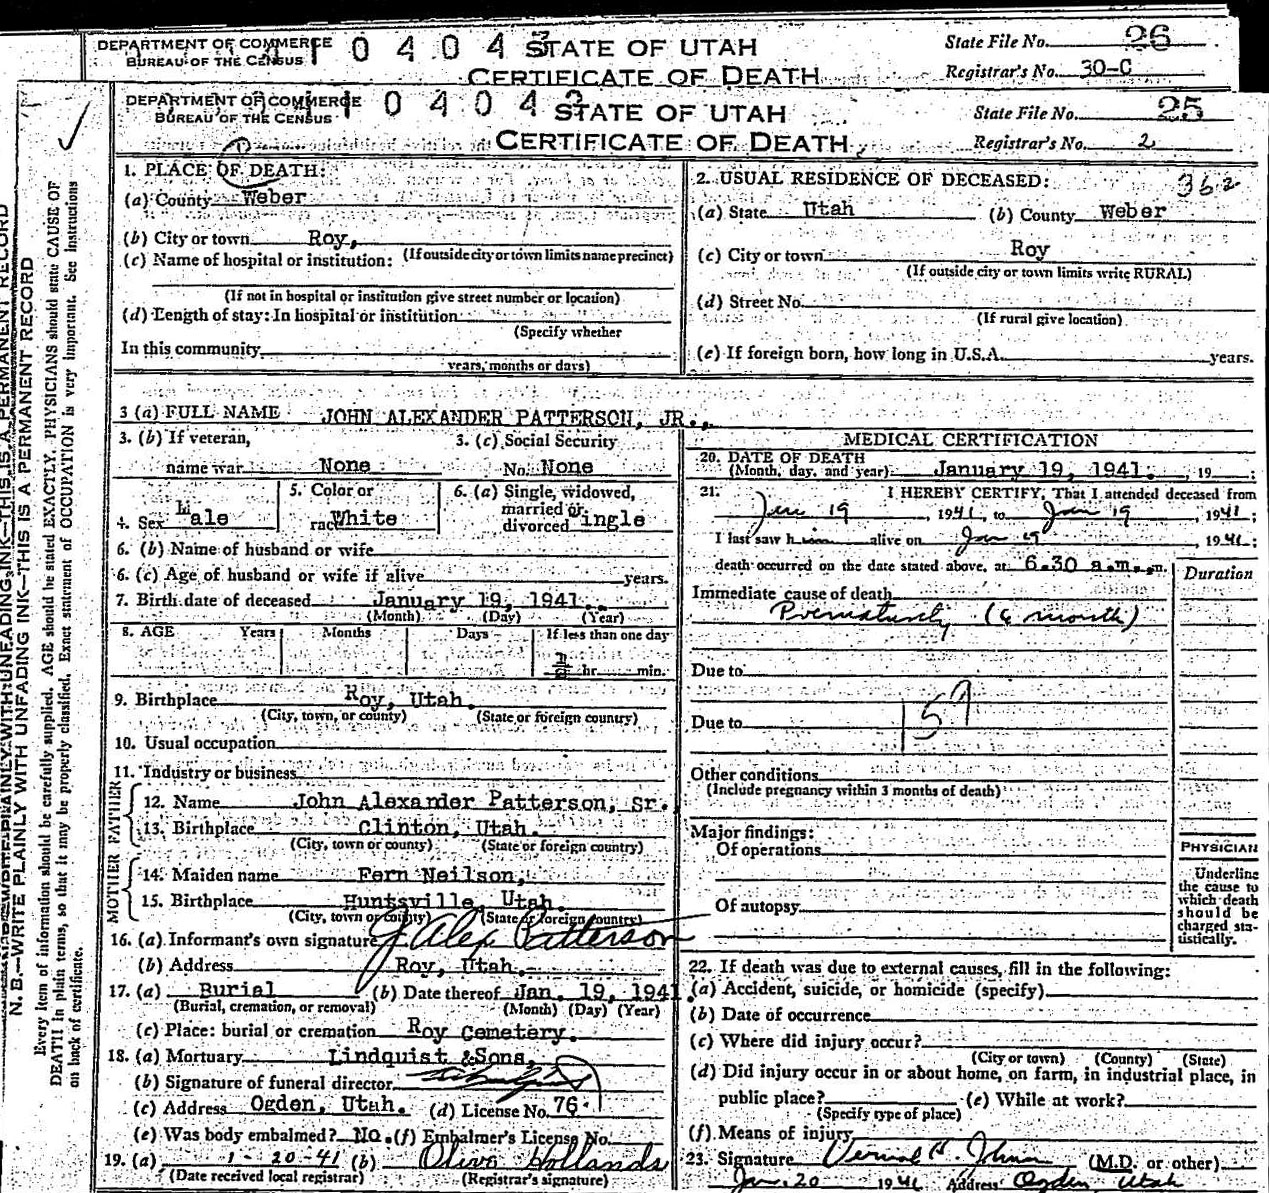 DEPARTMENT OF COMMERCE
BUREAU OF THE CENSUS
STATE OF UTAH
CERTIFICATE OF DEATH
State File No. 26
Registrar's No. 30-C
DEPARTMENT OF COMMERCE
BUREAU OF THE CENSUS
STATE OF UTAH
CERTIFICATE OF DEATH
State File No. 25
Registrar's No. 2
N. B.—WRITE PLAINLY WITH UNFADING INK—THIS IS A PERMANENT RECORD
Every item of information should be carefully supplied. AGE should be stated EXACTLY. PHYSICIANS should state CAUSE OF
DEATH in plain terms, so that it may be properly classified. Exact statement of OCCUPATION is very important. See instructions
on back of certificate.
1. PLACE OF DEATH:
(a) County Weber
(b) City or town Roy,
(If outside city or town limits name precinct)
(c) Name of hospital or institution:
(If not in hospital or institution give street number or location)
(d) Length of stay: In hospital or institution
(Specify whether
In this community
years, months or days)
2. USUAL RESIDENCE OF DECEASED: 362
(a) State Utah (b) County Weber
(c) City or town Roy
(If outside city or town limits write RURAL)
(d) Street No.
(If rural give location)
(e) If foreign born, how long in U.S.A. years.
3 (a) FULL NAME JOHN ALEXANDER PATTERSON, JR.,
3. (b) If veteran,
name war None
3. (c) Social Security
No. None
4. Sex Male
5. Color or
race White
6. (a) Single, widowed,
married or
divorced ingle
6. (b) Name of husband or wife
6. (c) Age of husband or wife if alive years.
7. Birth date of deceased January 19, 1941.
(Month) (Day) (Year)
8. AGE Years Months Days If less than one day
hr. min.
9. Birthplace Roy, Utah.
(City, town, or county) (State or foreign country)
10. Usual occupation
11. Industry or business
FATHER
12. Name John Alexander Patterson, Sr.
13. Birthplace Clinton, Utah.
(City, town or county) (State or foreign country)
MOTHER
14. Maiden name Fern Neilson,
15. Birthplace Huntsville, Utah.
(City, town or county) (State or foreign country)
16. (a) Informant's own signature J. Alex Patterson
(b) Address Roy, Utah.
17. (a) Burial (b) Date thereof Jan. 19, 1941.
(Burial, cremation, or removal) (Month) (Day) (Year)
(c) Place: burial or cremation Roy Cemetery.
18. (a) Mortuary Lindquist & Sons.
(b) Signature of funeral director
(c) Address Ogden, Utah. (d) License No. 76
(e) Was body embalmed? No. (f) Embalmer's License No.
19. (a) 1-20-41 (b) Olive Hollands
(Date received local registrar) (Registrar's signature)
MEDICAL CERTIFICATION
20. DATE OF DEATH
(Month, day, and year) January 19, 1941. , 19 ;
21. I HEREBY CERTIFY, That I attended deceased from
Jan 19, 1941, to Jan 19, 1941;
I last saw h alive on Jan 19, 1941;
death occurred on the date stated above, at 6.30 a.m. m.
Duration
Immediate cause of death
Prematurity (6 month)
Due to
159
Due to
Other conditions
(Include pregnancy within 3 months of death)
Major findings:
Of operations
Of autopsy
PHYSICIAN
Underline
the cause to
which death
should be
charged sta-
tistically.
22. If death was due to external causes, fill in the following:
(a) Accident, suicide, or homicide (specify)
(b) Date of occurrence
(c) Where did injury occur?
(City or town) (County) (State)
(d) Did injury occur in or about home, on farm, in industrial place, in
public place? (e) While at work?
(Specify type of place)
(f) Means of injury
23. Signature (M.D. or other)
Jan. 20 1941 Address Ogden Utah